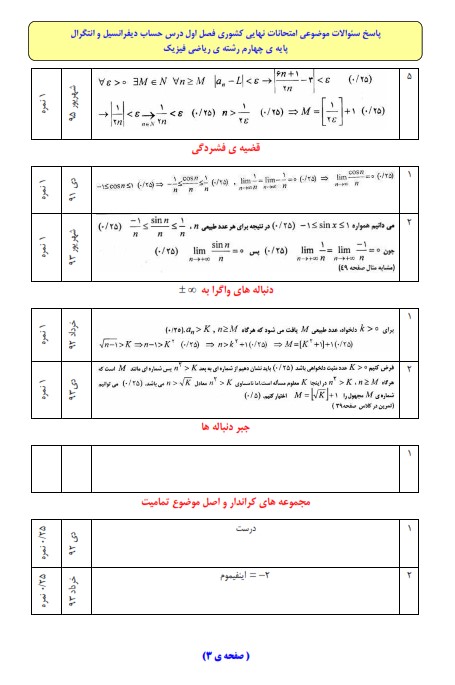 پاسخ سئوالات موضوعی امتحانات نهایی کشوری فصل اول درس حساب دیفرانسیل و انتگرال
پایه ی چهارم رشته ی ریاضی فیزیک
۵
∀ε>۰ ∃M∈N ∀n≥M |aₙ−L|<ε → |(۶n+۱)/۲n − ۳|<ε (۰/۲۵)
→ |۱/۲n|<ε →(n∈N) ۱/۲n<ε (۰/۲۵) n>۱/۲ε (۰/۲۵) ⇒ M=[۱/۲ε]+۱ (۰/۲۵)
شهریور ۹۵
۱ نمره
قضیه ی فشردگی
۱
−۱≤cosn≤۱ (۰/۲۵) ⇒ −۱/n≤cosn/n≤۱/n (۰/۲۵) , lim ۱/n = lim −۱/n = ۰ (۰/۲۵) ⇒ lim cosn/n = ۰ (۰/۲۵)
دی ۹۱
۱ نمره
۲
می دانیم همواره −۱≤sin x≤۱ (۰/۲۵) در نتیجه برای هر عدد طبیعی n ، −۱/n ≤ sin n/n ≤ ۱/n (۰/۲۵)
چون lim(n→+∞) −۱/n = lim(n→+∞) ۱/n = ۰ (۰/۲۵) پس lim(n→+∞) sin n/n = ۰ (۰/۲۵)
(مشابه مثال صفحه ۴۹)
شهریور ۹۳
۱ نمره
دنباله های واگرا به ±∞
۱
برای k>۰ دلخواه، عدد طبیعی M یافت می شود که هرگاه n≥M , aₙ>K (۰/۲۵)
√(n−۱)>K ⇒ n−۱>K² (۰/۲۵) ⇒ n>k²+۱ (۰/۲۵) ⇒ M=[K²+۱]+۱ (۰/۲۵)
خرداد ۹۲
۱ نمره
۲
فرض کنیم K>۰ عدد مثبت دلخواهی باشد (۰/۲۵) باید نشان دهیم از شماره ای به بعد n²>K پس شماره ای مانند M است که
هرگاه n²>K ، n≥M در اینجا K معلوم مسأله است.اما نامساوی n²>K معادل n>√K می باشد. (۰/۲۵) می توانیم
شماره ی M مجهول را M=[√K]+۱ اختیار کنیم. (۰/۵)
(تمرین در کلاس صفحه۳۹)
دی ۹۳
۱ نمره
جبر دنباله ها
۱
مجموعه های کراندار و اصل موضوع تمامیت
۱
درست
دی ۹۲
۰/۲۵ نمره
۲
−۲ = اینفیموم
خرداد ۹۳
۰/۲۵ نمره
( صفحه ی ۳)